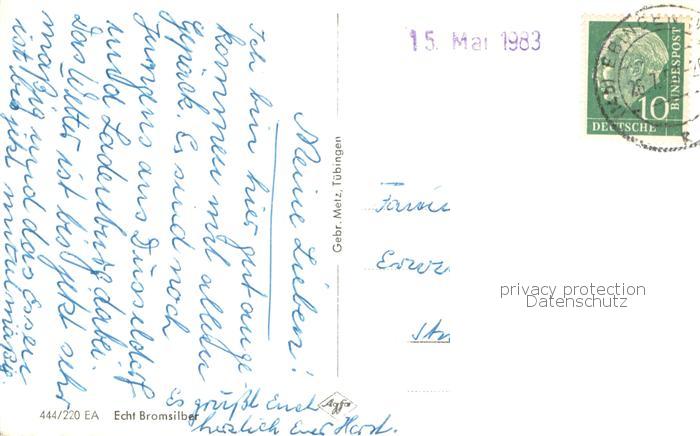 Meine Lieben!
Ich bin hier gut ange
kommen mit allem
Gepäck. Es sind noch
Jungens aus Düsseldorf
und Ladenburg dabei.
Das Wetter ist bis jetzt sehr
mäßig und das Essen
ist bis jetzt mittelmäßig.
Es grüßt Euch
herzlich Euer Horst.
444/220 EA Echt Bromsilber
Agfa
Gebr. Metz, Tübingen
15. Mai 1983
10
DEUTSCHE
BUNDESPOST
EBINGEN
Familie
privacy protection
Datenschutz